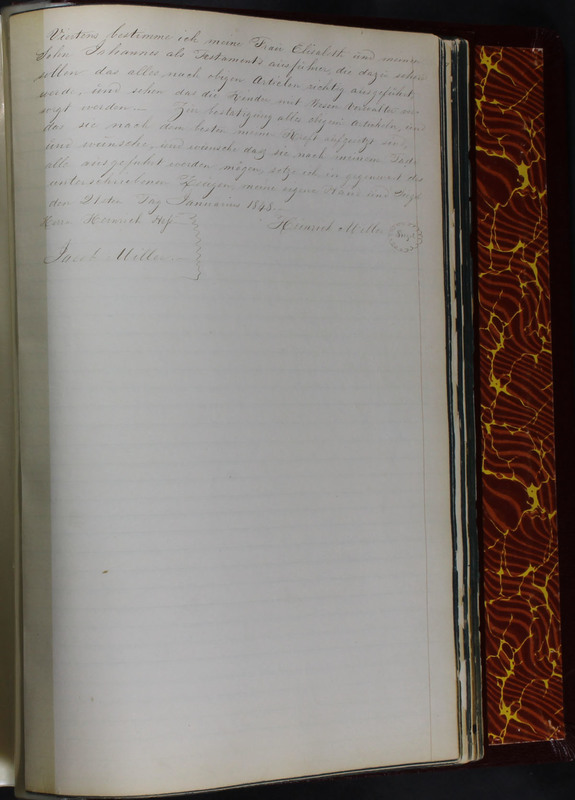 Viertens, bestimme ich meine Frau Elisabeth und meinen
Sohn Johannes als Testaments ausführer, die dazu sehen
sollen das alles, nach obigen Artiklen richtig ausgeführt
werde, und sehen das die Kinder mit
sorgt werden. Zur bestätigung alles obigen Artikeln, und
das sie nach dem besten meiner
und wünsche, und wünsche daß sie nach meinem Tode
alle ausgeführt werden mögen, setze ich in gegenwart des
unterschriebenen Zeugen meine eigene Hand und Siegel
den Tag Januarius 1848.
Heinrich Heinrich Miller Seal
Jacob Miller